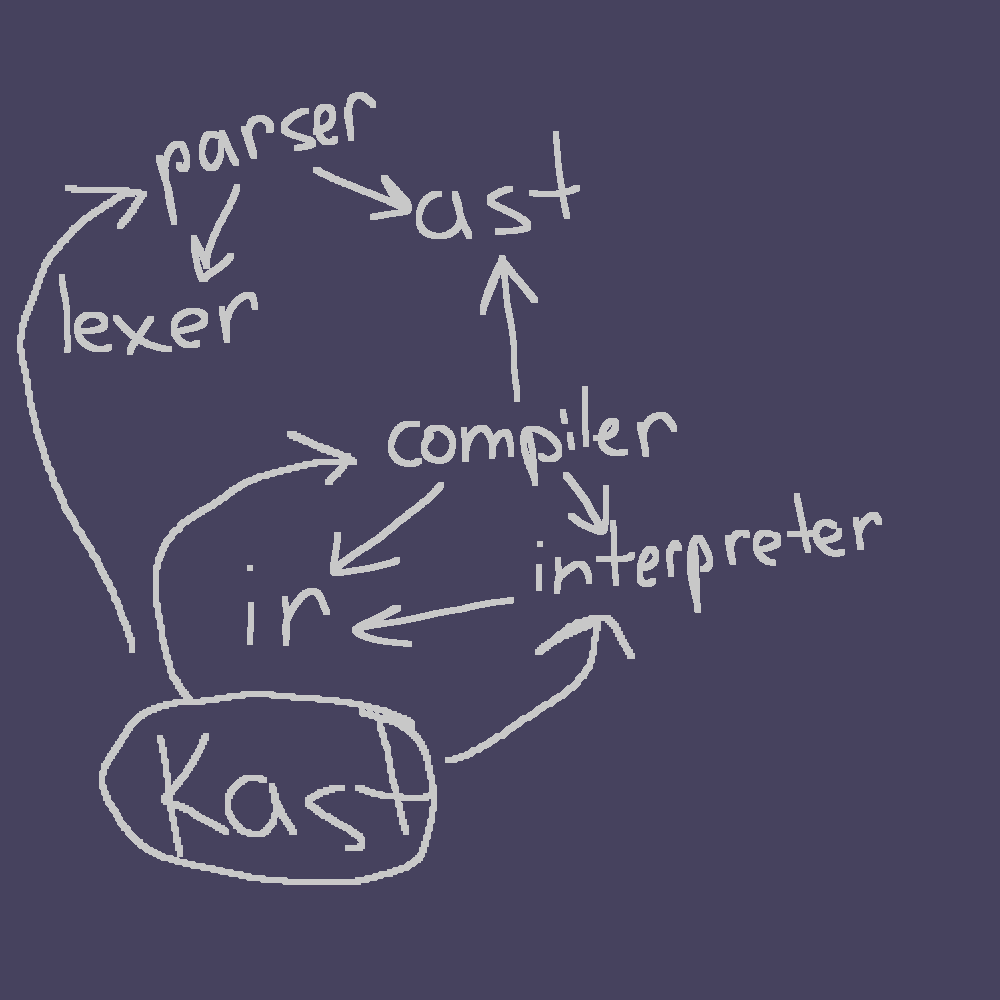 parser
ast
lexer
compiler
interpreter
ir
Kast